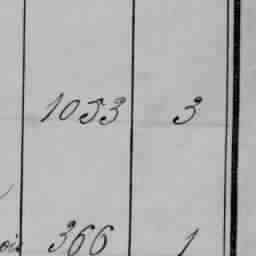 1053 3
366 1